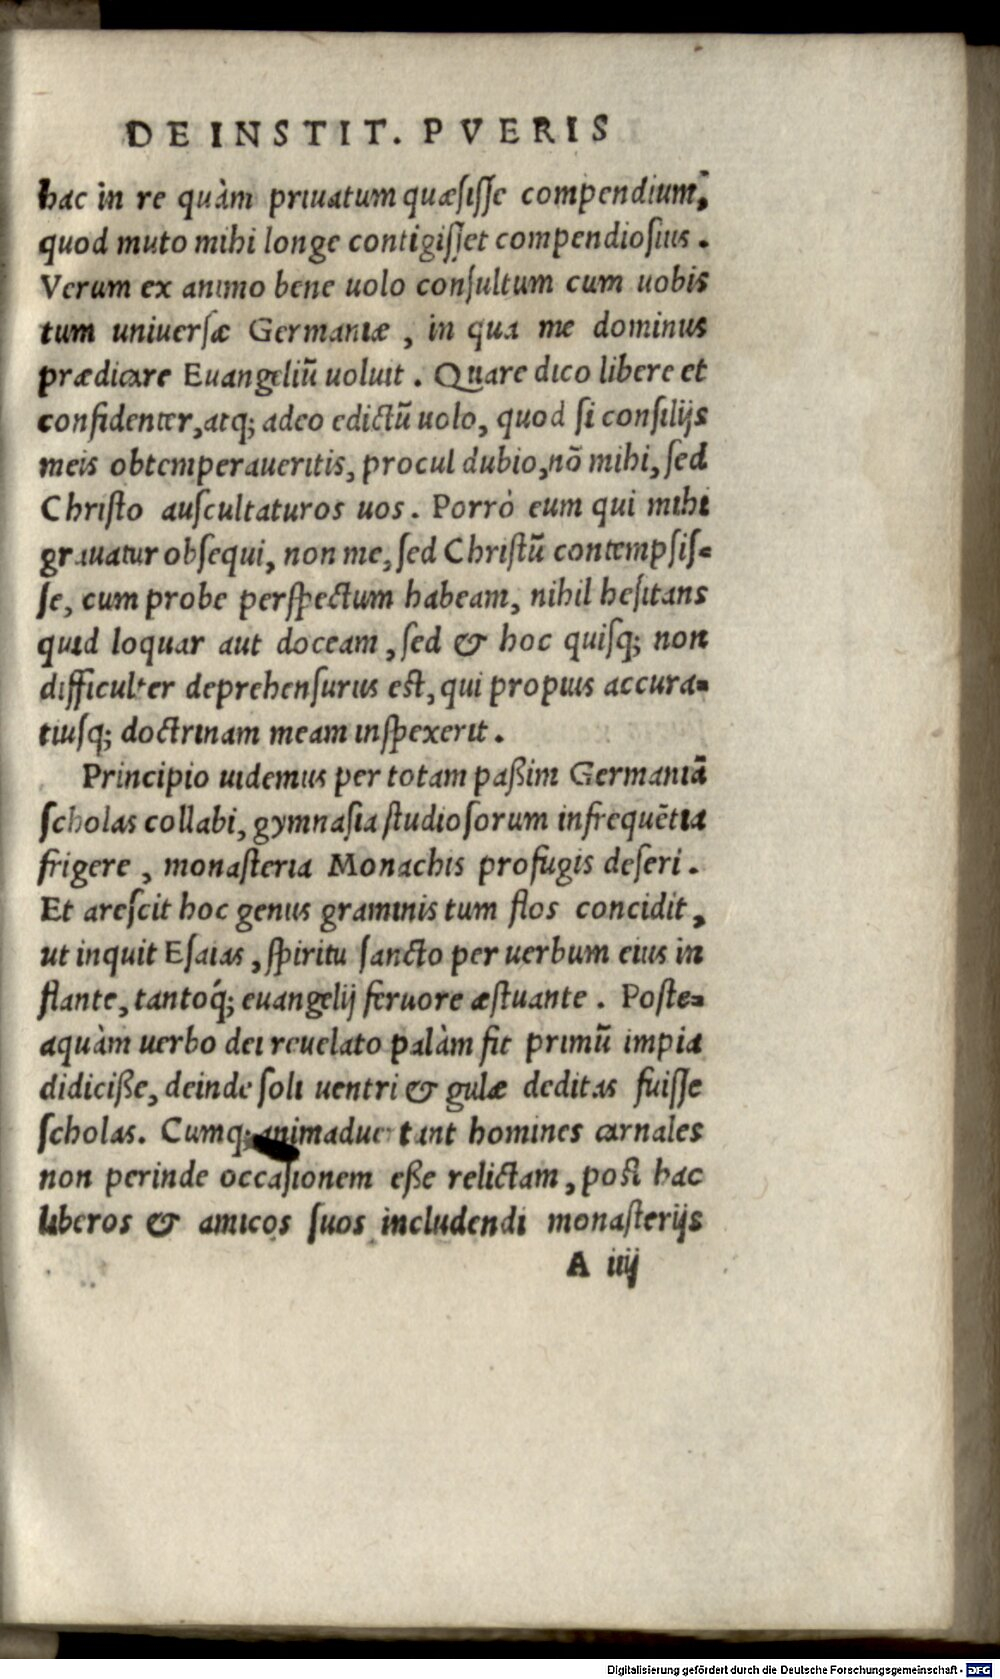 DE INSTIT. PVERIS
hac in re quàm priuatum quæsiſſe compendium,
quod muto mihi longe contigiſſet compendioſius.
Verum ex animo bene uolo conſultum cum uobis
tum uniuerſæ Germaniæ, in qua me dominus
prædicare Euangeliũ uoluit. Quare dico libere et
confidenter, atq; adeo edictũ uolo, quod ſi conſilijs
meis obtemperaueritis, procul dubio, nõ mihi, ſed
Chriſto auſcultaturos uos. Porrò eum qui mihi
grauatur obſequi, non me, ſed Chriſtũ contempſiſ-
ſe, cum probe perſpectum habeam, nihil heſitans
quid loquar aut doceam, ſed & hoc quiſq; non
difficulter deprehenſurus eſt, qui propius accura-
tiuſq; doctrinam meam inſpexerit.
Principio uidemus per totam paßim Germaniã
ſcholas collabi, gymnaſia ſtudioſorum infrequẽtia
frigere, monaſteria Monachis profugis deſeri.
Et areſcit hoc genus graminis tum flos concidit,
ut inquit Eſaias, ſpiritu ſancto per uerbum eius in
flante, tantoq́; euangelij feruore æſtuante. Poſte-
aquàm uerbo dei reuelato palàm fit primũ impia
didiciße, deinde ſoli uentri & gulæ deditas fuiſſe
ſcholas. Cumq; animaduertant homines carnales
non perinde occaſionem eße relictam, poſt hac
liberos & amicos ſuos includendi monaſterijs
A iiij
Digitalisierung gefördert durch die Deutsche Forschungsgemeinschaft - DFG